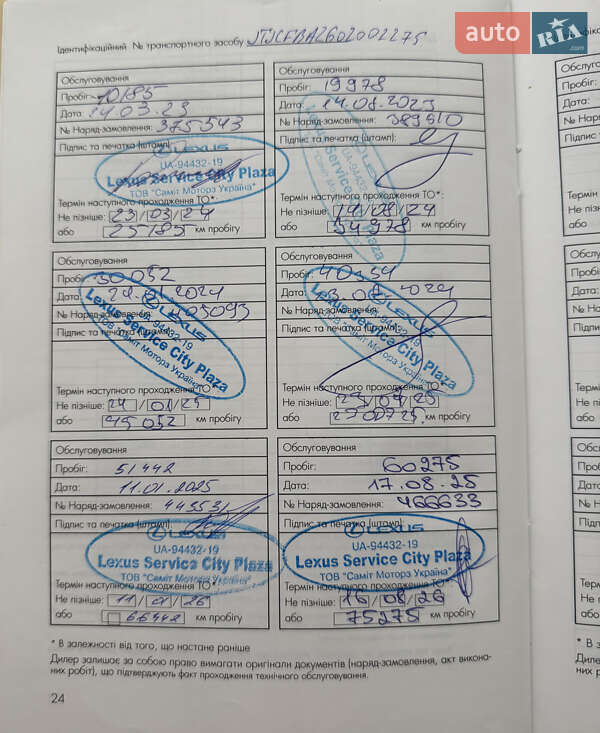 Ідентифікаційний № транспортного засобу JTJCFBAZ602002275
auto RIA.com
Обслуговування
Пробіг: 10185
Дата: 14.03.23
№ Наряд-замовлення: 375543
Підпис та печатка (штамп)
LEXUS
UA-94432-19
Lexus Service City Plaza
ТОВ "Саміт Моторз Україна"
Термін наступного проходження ТО*:
Не пізніше: 23/03/24
або 25185 км пробігу
Обслуговування
Пробіг: 19978
Дата: 14.08.2023
№ Наряд-замовлення: 389510
Підпис та печатка (штамп):
LEXUS
UA-94432-19
Lexus Service City Plaza
Термін наступного проходження ТО*:
Не пізніше: 14/08/24
або 34978 км пробігу
Обслуговування
Пробіг: 30052
Дата: 2024
№ Наряд-замовлення: 405093
Підпис та печатка (штамп)
LEXUS
UA-94432-19
Lexus Service City Plaza
ТОВ "Саміт Моторз Україна"
Термін наступного проходження ТО*
Не пізніше: 24/01/25
або 45052 км пробігу
Обслуговування
Пробіг: 40354
Дата: 2024
№ Наряд-замовлення:
Підпис та печатка (штамп)
LEXUS
UA-94432-19
Lexus Service City Plaza
ТОВ "Саміт Моторз Україна"
Термін наступного проходження ТО
Не пізніше: 23/07/25
або км пробігу
Обслуговування
Пробіг: 51442
Дата: 11.01.2025
№ Наряд-замовлення: 443531
Підпис та печатка (штамп)
LEXUS
UA-94432-19
Lexus Service City Plaza
ТОВ "Саміт Моторз Україна"
Термін наступного проходження ТО*:
Не пізніше: 11/01/26
або 66442 км пробігу
Обслуговування
Пробіг: 60275
Дата: 17.08.25
№ Наряд-замовлення: 466633
Підпис та печатка (штамп):
LEXUS
UA-94432-19
Lexus Service City Plaza
ТОВ "Саміт Моторз Україна"
Термін наступного проходження ТО*:
Не пізніше: 16/08/26
або 75275 км пробігу
* В залежності від того, що настане раніше
Дилер залишає за собою право вимагати оригінали документів (наряд-замовлення, акт викона-
них робіт), що підтверджують факт проходження технічного обслуговування.
24